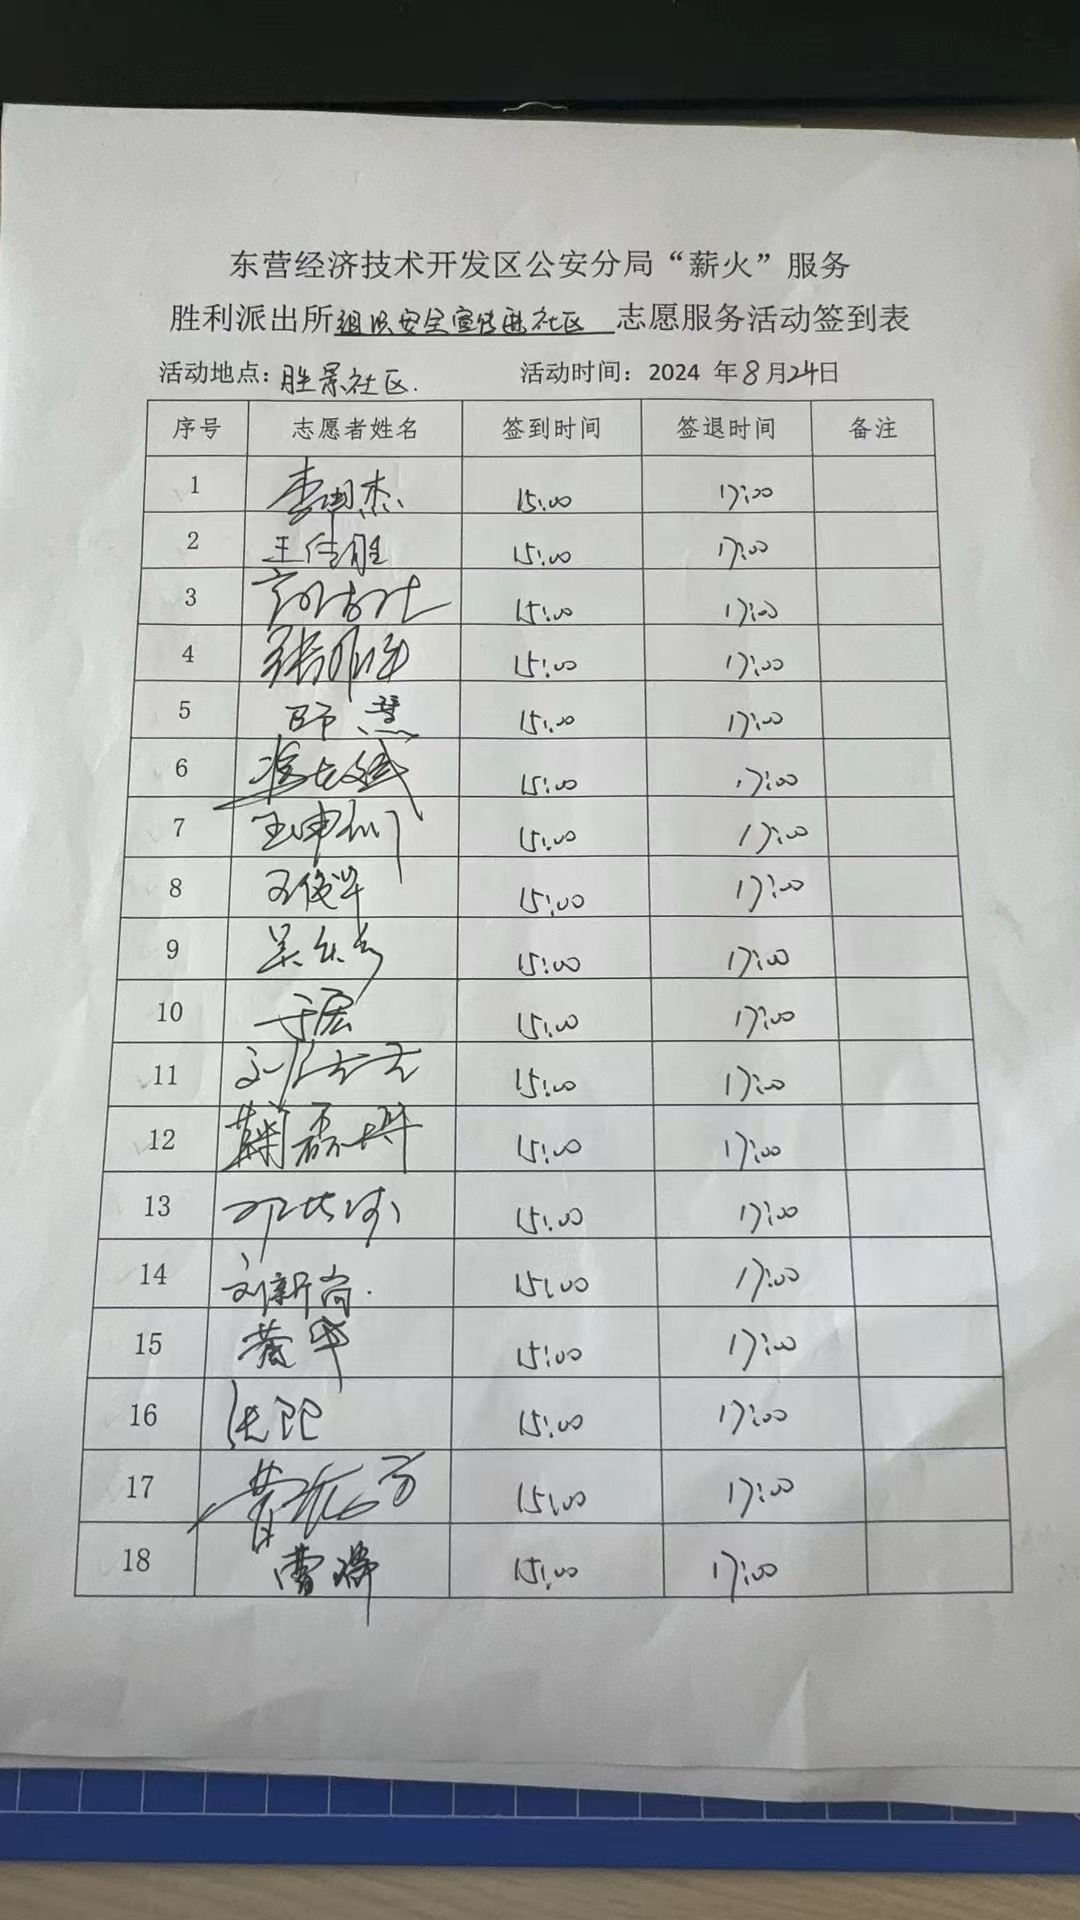 东营经济技术开发区公安分局“薪火”服务
胜利派出所安全宣传进社区 志愿服务活动签到表
活动地点：胜景社区. 活动时间：2024 年8月24日
序号 志愿者姓名 签到时间 签退时间 备注
1 李国杰 15:00 17:00
2 王传胜 15:00 17:00
3 15:00 17:00
4 15:00 17:00
5 师慧 15:00 17:00
6 15:00 17:00
7 15:00 17:00
8 王俊华 15:00 17:00
9 15:00 17:00
10 于宏 15:00 17:00
11 15:00 17:00
12 15:00 17:00
13 15:00 17:00
14 刘新尚. 15:00 17:00
15 15:00 17:00
16 15:00 17:00
17 15:00 17:00
18 曹瑞 15:00 17:00